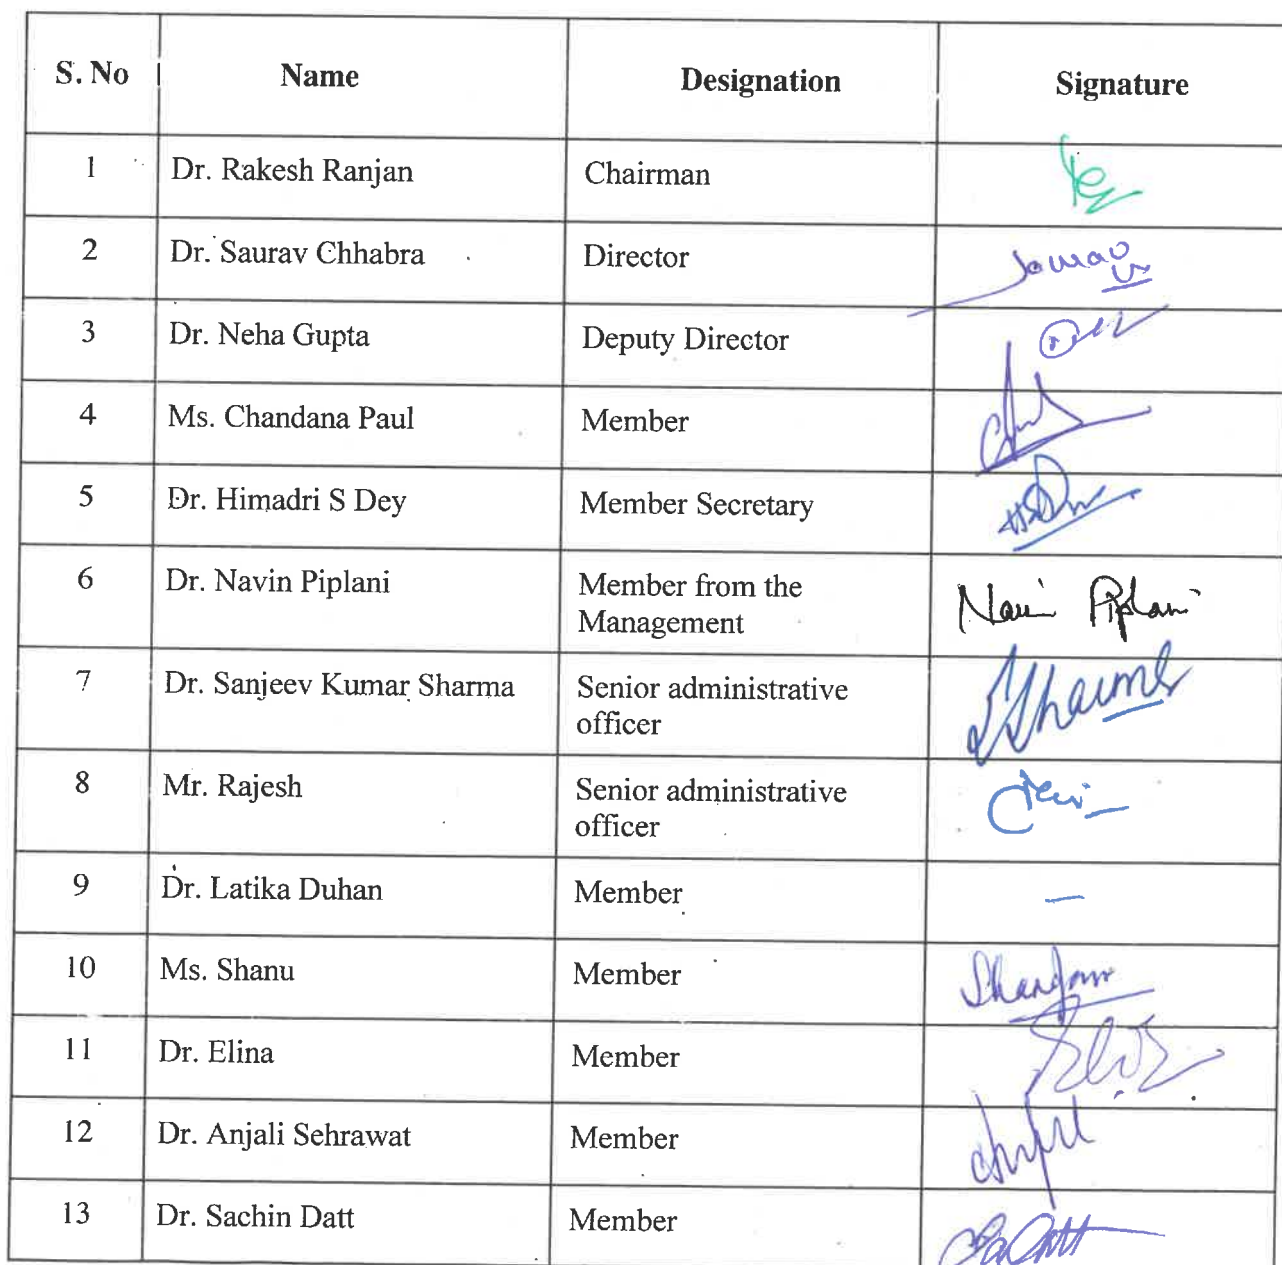 S. No Name Designation Signature
1 Dr. Rakesh Ranjan Chairman
2 Dr. Saurav Chhabra Director Saurav
3 Dr. Neha Gupta Deputy Director
4 Ms. Chandana Paul Member
5 Dr. Himadri S Dey Member Secretary
6 Dr. Navin Piplani Member from the
Management Navin Piplani
7 Dr. Sanjeev Kumar Sharma Senior administrative
officer SSharma
8 Mr. Rajesh Senior administrative
officer
9 Dr. Latika Duhan Member —
10 Ms. Shanu Member
11 Dr. Elina Member
12 Dr. Anjali Sehrawat Member
13 Dr. Sachin Datt Member